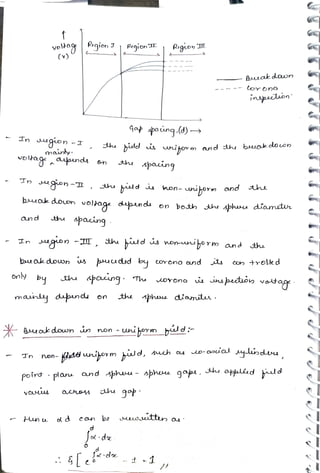 voltag
(v)
Region I
Region II
Region III
Breakdown
Corona
inspection
Gap spacing (d) →
- In region - I, the field is uniform and the breakdown
voltage mainly depends on the spacing
- In region - II, the field is non-uniform and the
breakdown voltage depends on both the sphere diameter
and the spacing.
- In region - III, the field is non-uniform and the
breakdown is preceded by corona and its con trolled
only by the spacing. The corona is inspection voltage
mainly depends on the sphere diameter.
* Breakdown in non-uniform field:-
- In non-uniform field, such as co-axial cylinders,
point-plane and sphere-sphere gaps, the applied field
varies across the gap.
- Hence αd can be rewritten as
d
∫ α·dx
0